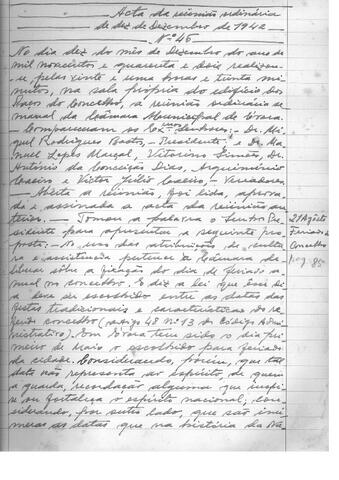 Acta da reunião ordinária
de dez de Dezembro de 1942
Nº 46
No dia dez do mês de Dezembro do ano de
mil novecentos e quarenta e dois realizou-
se pelas vinte e uma horas e trinta mi-
nutos, na sala própria do edifício dos
Paços do Concelho, a reunião ordinária se-
manal da Câmara Municipal de
Compareceram os Exmos Senhores: Dr. Mi-
guel Rodrigues Bastos, Presidente e Dr. Ma-
nuel Lopes Marçal, Vitorino Gomes, Dr.
António da Conceição Dias,
e Victor Vereadores.
Aberta a reunião, foi lida, aprova-
da e assinada a acta da reunião an-
terior. — Tomou a palavra o Senhor Pre-
sidente para apresentar a seguinte pro-
posta: — No uso das atribuições de cultu-
ra e assistência pertence à Câmara de-
liberar sôbre a fixação do dia de feriado a-
nual no concelho. E diz a lei que êsse di-
a deve ser escolhido entre as datas das
festas tradicionais e características do re-
ferido concelho (artigo 48 nº 13 do Código Admi-
nistrativo). Em tem sido o dia pri-
meiro de Maio o escolhido para feriado
da cidade. Considerando, porém, que tal
data não representa ao espírito de quem
a guarda, recordação alguma que inspi-
re ou fortaleça o espírito nacional; con-
siderando, por outro lado, que são inú-
meras as datas que na história da
21 Agosto
Feriado do
Concelho
pag. 85